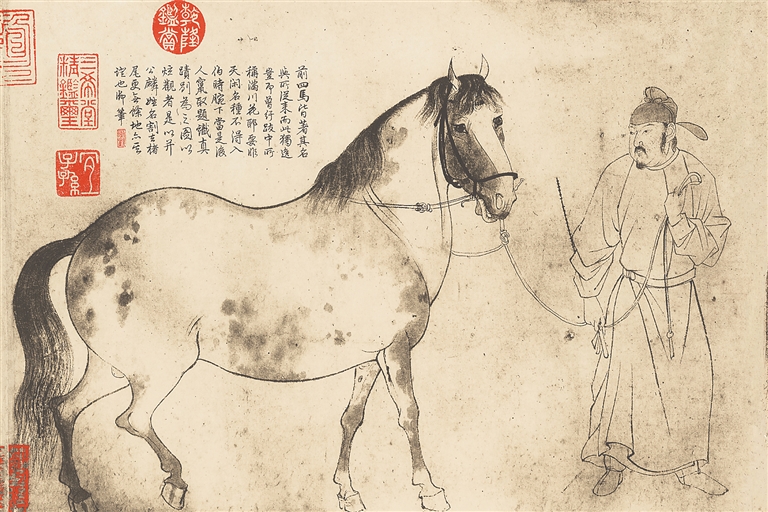 乾隆鑑賞
前四馬皆著其名
與所從來而此獨逸
豈即曾紆跋中所
稱滿川花耶要非
天閑名種不得入
伯時腕下當是後
人竊取題識真
蹟別為之圖以
炫觀者是以并
公麟姓名割去楮
尾更無餘地亦一
證也御筆
三希堂精鑑璽
宜子孫